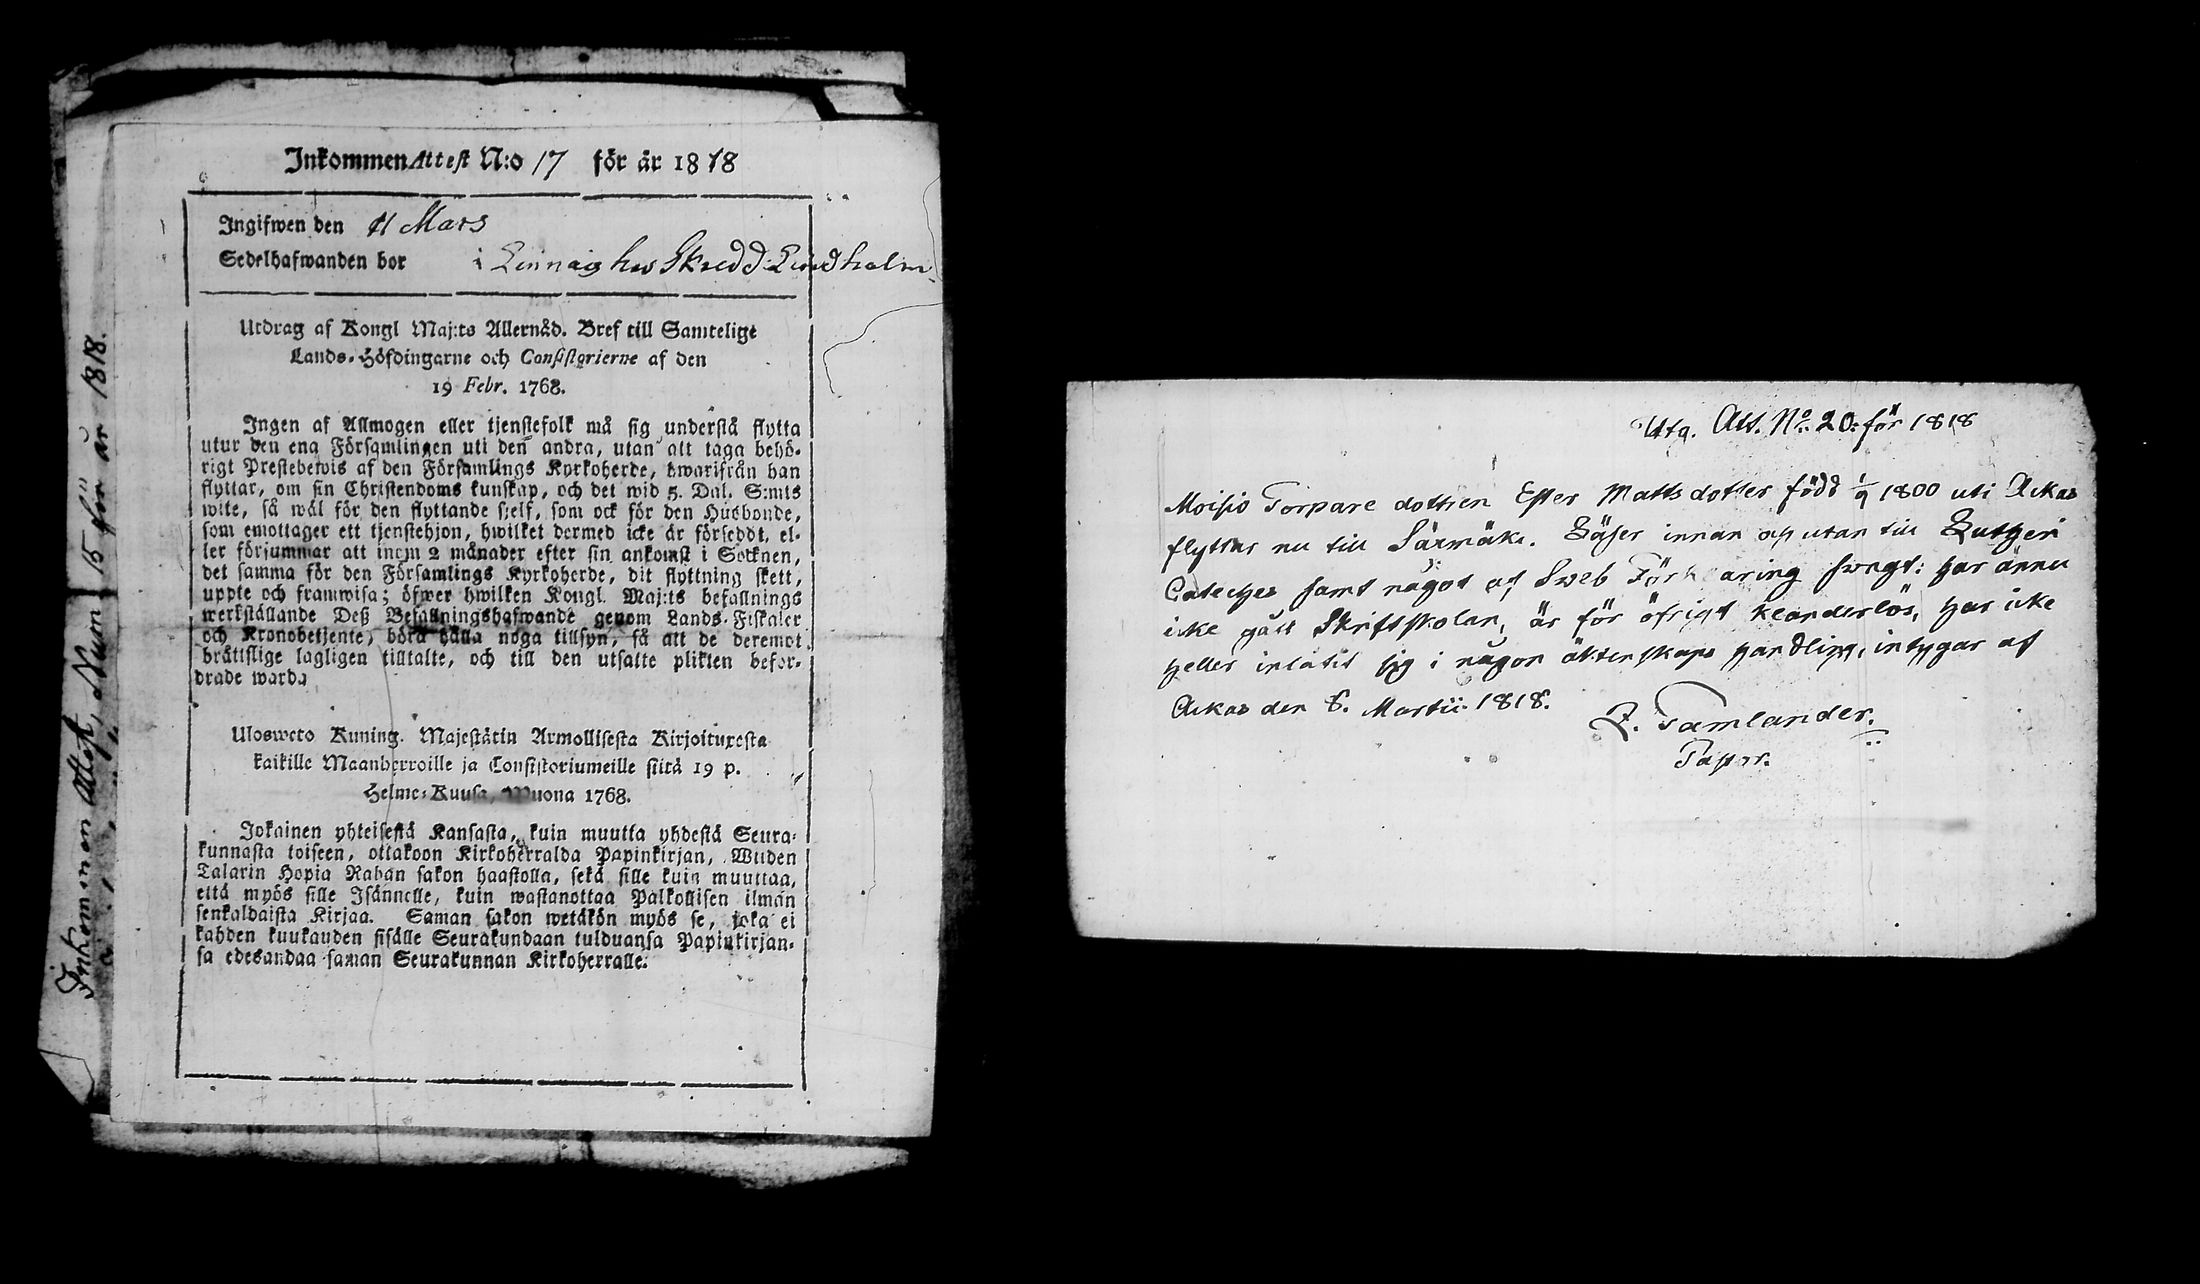 Inkommen Attest N:o 17 för år 1818
Ingifwen den 11 Mars
Sedelhafwanden bor i Linnais hos Skredd: Lindholm
Utdrag af Kongl Maj:ts Allernåd. Bref till Samtelige
Lands-Höfdingarne och Consistorierne af den
19 Febr. 1768.
Ingen af Allmogen eller tjenstefolk må sig understå flytta
utur den ena Församlingen uti den andra, utan att taga behö-
rigt Prestebewis af den Församlings Kyrkoherde, hwarifrån han
flyttar, om sin Christendoms kunskap, och det wid 5. Dal. S:mts
wite, så wäl för den flyttande sjelf, som ock för den Husbonde,
som emottager ett tjenstehjon, hwilket dermed icke är försedt, el-
ler försummar att inom 2 månader efter sin ankomst i Socknen,
det samma för den Församlings Kyrkoherde, dit flyttning skett,
uppte och framwisa; öfwer hwilken Kongl. Maj:ts befallnings
werkställande Deß Befallningshafwande genom Lands-Fiskaler
och Kronobetjente, böra hålla noga tillsyn, så att de deremot
bråttslige lagligen tilltalte, och till den utsatte plikten befor-
drade warda
Ulosweto Kuning. Majestätin Armollisesta Kirjoituxesta
kaikille Maanherroille ja Consistoriumeille siitä 19 p.
Helme-Kuusa, Wuona 1768.
Jokainen yhteisestä Kansasta, kuin muutta yhdestä Seura-
kunnasta toiseen, ottakoon Kirkoherralda Papinkirjan, Wiiden
Talarin Hopia Rahan sakon haastolla, sekä sille kuin muuttaa,
että myös sille Isännelle, kuin wastanottaa Palkollisen ilman
senkaldaista Kirjaa. Saman sakon wetäkön myös se, joka ei
kahden kuukauden sisälle Seurakundaan tulduansa Papinkirjan-
sa edesandaa saman Seurakunnan Kirkoherralle.
Inkommen Attest, Num 15 för år 1818.
Utg. Att. No. 20: för 1818
Moisio Torpare dottren Ester Mattsdotter född 1/9 1800 uti Ackas
flyttar nu till Säxmäki. Läser innan och utan till Lutheri
Cateches samt något af Sweb Förklaring swagt: har ännu
icke gått Skriftskolan, är för öfrigt klanderlös, har icke
heller inlåtit sig i någon äktenskaps handling, intygar af
Ackas den 8. Martii 1818.
Z. Tamlander.
Pastor.